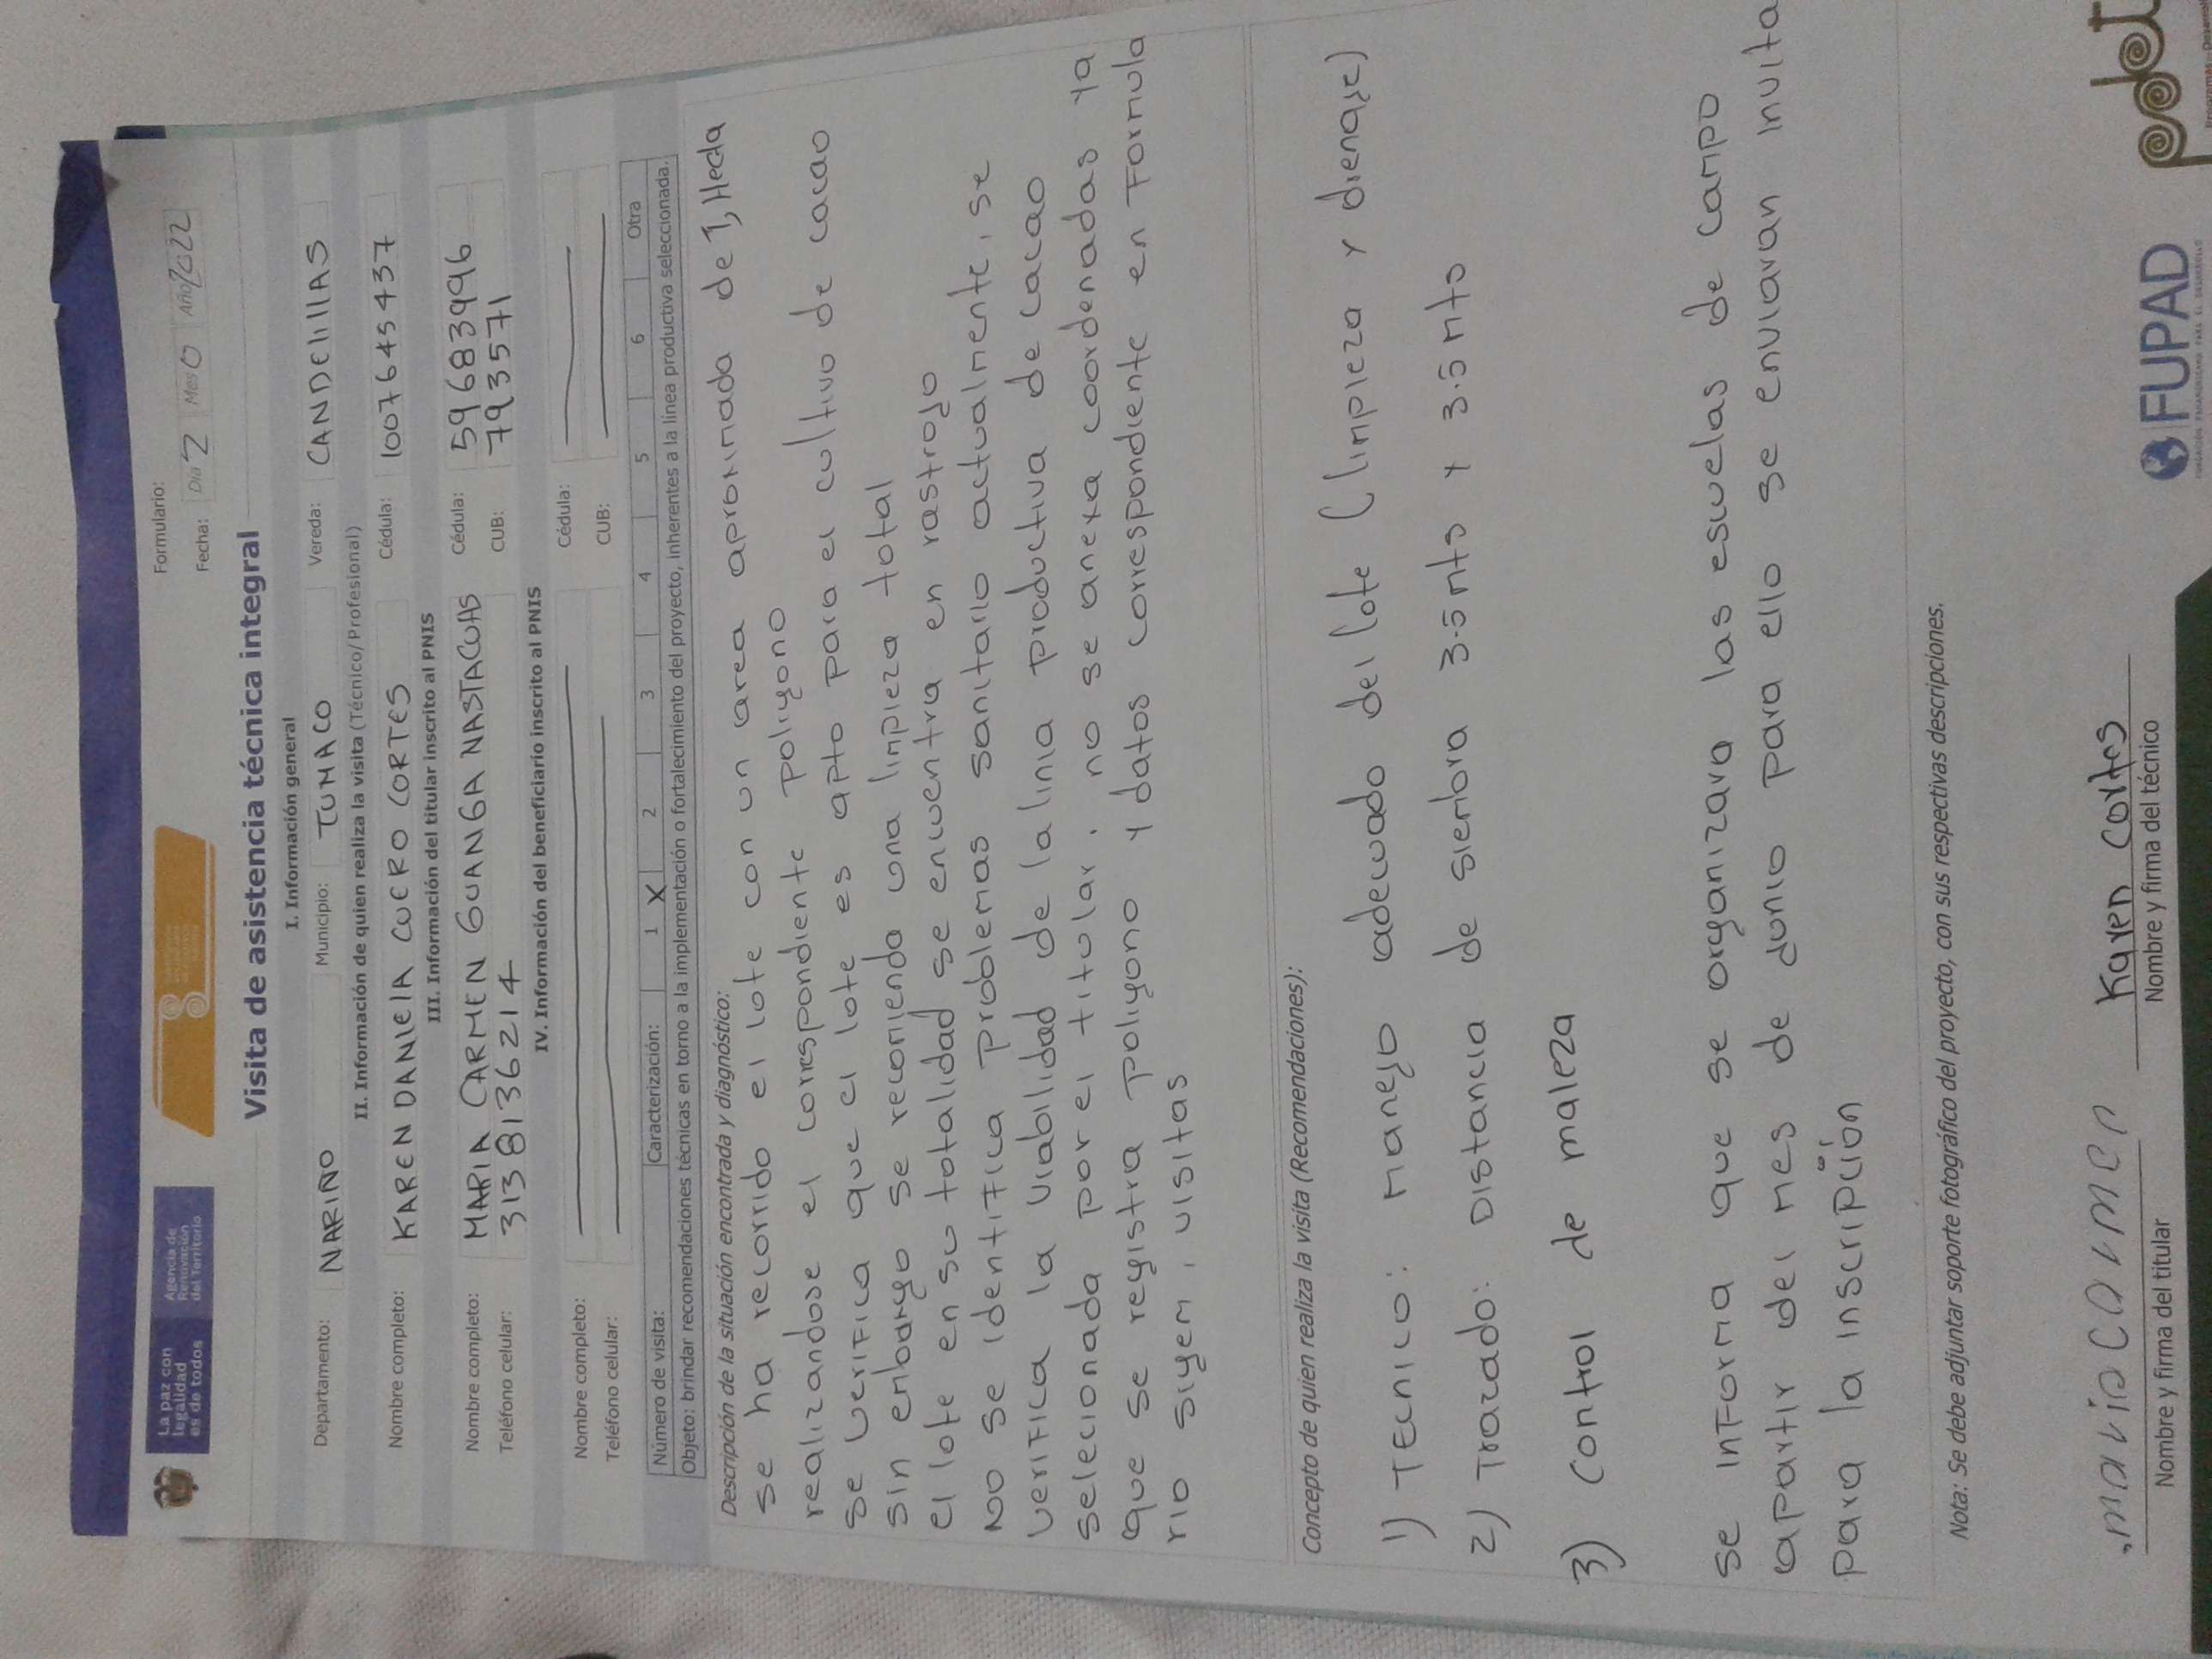 La paz con
legalidad
es de todos
Agencia de
Renovación
del Territorio
Formulario:
Fecha: Día 2 Mes 0 Año 2022
Visita de asistencia técnica integral
I. Información general
Departamento: NARIÑO Municipio: TUMACO Vereda: CANDElIllAS
II. Información de quien realiza la visita (Técnico/Profesional)
Nombre completo: KAREN DANIElA CUERO CORTES Cédula: 1007645437
III. Información del titular inscrito al PNIS
Nombre completo: MARIA CARMEN GUANGA NASTACUAS Cédula: 59683996
Teléfono celular: 3138136214 CUB: 7935571
IV. Información del beneficiario inscrito al PNIS
Nombre completo: Cédula:
Teléfono celular: CUB:
Número de visita: Caracterización: 1 X 2 3 4 5 6 Otra
Objeto: brindar recomendaciones técnicas en torno a la implementación o fortalecimiento del proyecto, inherentes a la línea productiva seleccionada.
Descripción de la situación encontrada y diagnóstico:
se ha recorrido el lote con un area aproximada de 1, Hecta
realizandose el correspondiente poligono
se verifica que el lote es apto para el cultivo de cacao
sin embargo se recomienda una limpieza total
el lote en su totalidad se encuentra en rastrojo
No se identifica problemas sanitario actualmente, se
verifica la viabilidad de la linia productiva de cacao
selecionada por el titular, no se anexa coordenadas ya
que se registra poligono y datos correspondiente en formula
rio sigem, visitas
Concepto de quien realiza la visita (Recomendaciones):
1) Tecnico: manejo adecuado del lote (limpieza y drenaje)
2) Trazado: Distancia de siembra 3.5 mts y 3.5 mts
3) control de maleza
se informa que se organizara las escuelas de campo
apartir del mes de junio para ello se enviaran invita
para la inscripción
Nota: Se debe adjuntar soporte fotográfico del proyecto, con sus respectivas descripciones.
maria carmen
Nombre y firma del titular
Karen Cortes
Nombre y firma del técnico
FUPAD
pdet